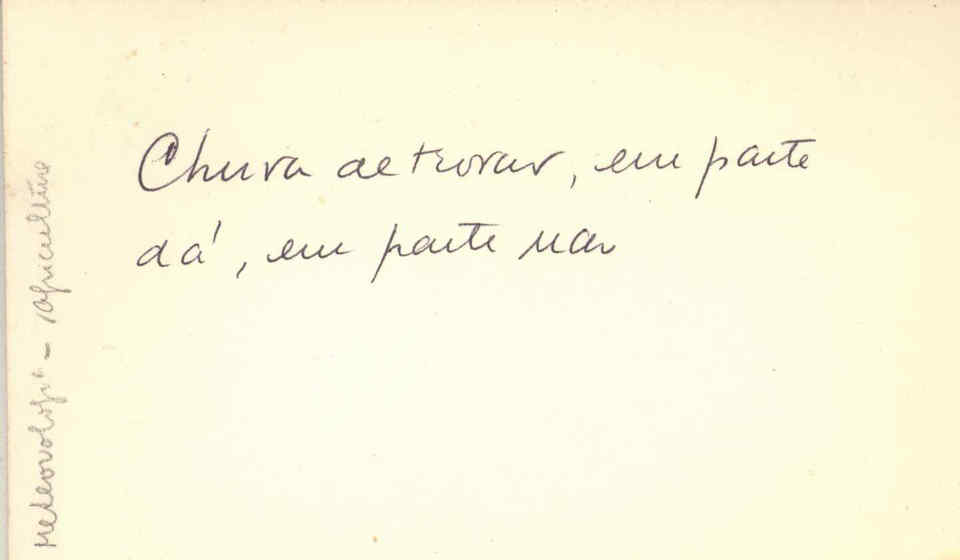 Chuva de trovão, em parte
dá, em parte não
Meteorologia - Agricultura